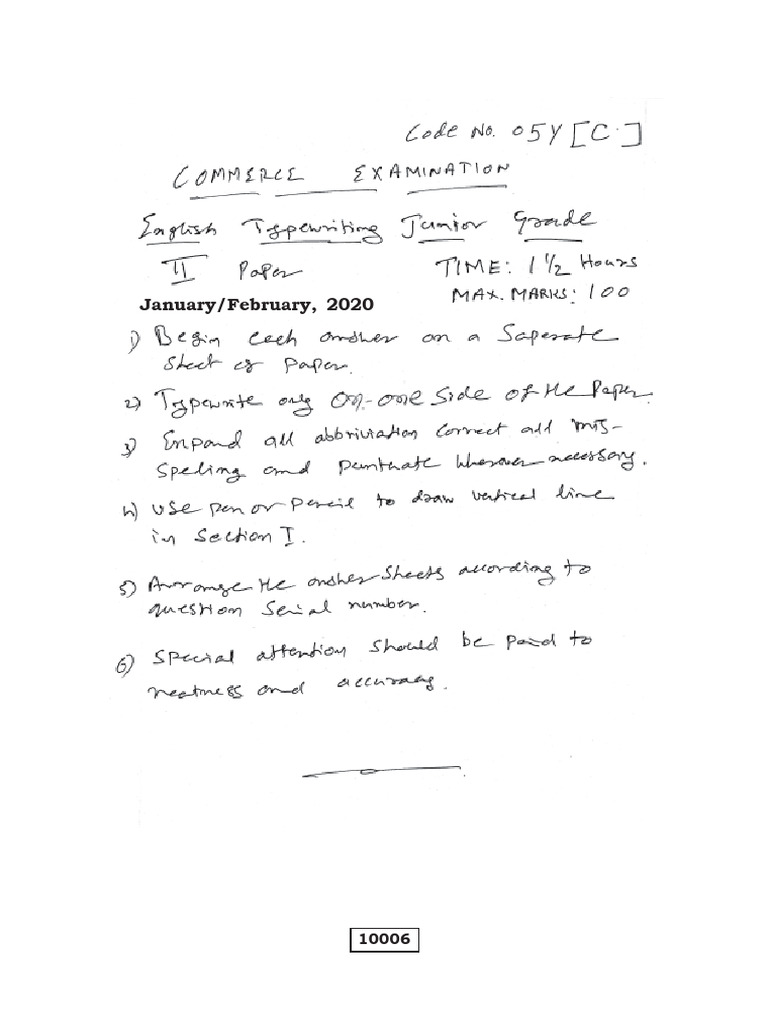 Code No. 05Y [C.]
COMMERCE EXAMINATION
English Typewriting Junior Grade
II Paper TIME: 1 1/2 Hours
MAX. MARKS: 100
January/February, 2020
1) Begin each answer on a Saperate
sheet of paper.
2) Typewrite only on-one side of the Paper.
3) Expand all abbriviation correct all mis-
speling and puntuate wherever necessary.
4) use pen or pencil to draw vertical line
in section I.
5) Arrange the answer sheets according to
question serial number.
6) special attention should be paid to
neatness and accuracy.
10006